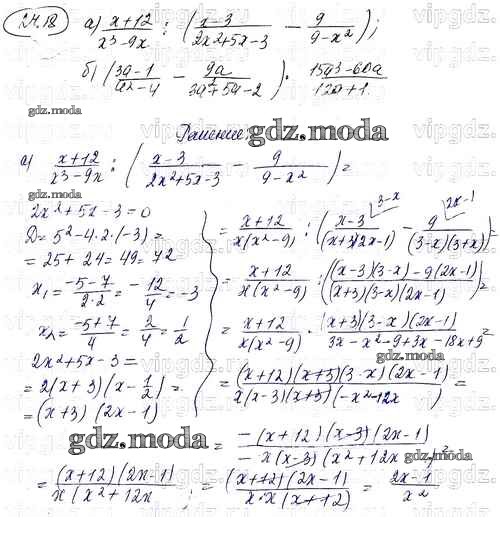 24.18 a) (x+12)/(x³-9x) : ((x-3)/(2x²+5x-3) - 9/(9-x²));
б) ((3a-1)/(a²-4) - 9a/(3a²+5a-2)) · (15a³-60a)/(12a+1)
gdz.moda
Решение:
gdz.moda
a) (x+12)/(x³-9x) : ((x-3)/(2x²+5x-3) - 9/(9-x²)) =
2x²+5x-3=0
D=5²-4·2·(-3)=
=25+24=49=7²
x₁=(-5-7)/(2·2)=-12/4=-3
x₂=(-5+7)/4=2/4=1/2
2x²+5x-3=
=2(x+3)(x-1/2)=
=(x+3)(2x-1)
= (x+12)/(x(x²-9)) : ((x-3)/((x+3)(2x-1)) - 9/((3-x)(3+x))) =
3-x 2x-1
= (x+12)/(x(x²-9)) : (((x-3)(3-x)-9(2x-1))/((x+3)(3-x)(2x-1))) =
= (x+12)/(x(x²-9)) · ((x+3)(3-x)(2x-1))/(3x-x²-9+3x-18x+9) =
= ((x+12)(x+3)(3-x)(2x-1))/(x(x-3)(x+3)(-x²-12x)) =
gdz.moda
= (-(x+12)(x-3)(2x-1))/(-x(x-3)(x²+12x)) =
= ((x+12)(2x-1))/(x(x²+12x)) = ((x+12)(2x-1))/(x·x(x+12)) = (2x-1)/x²
gdz.moda